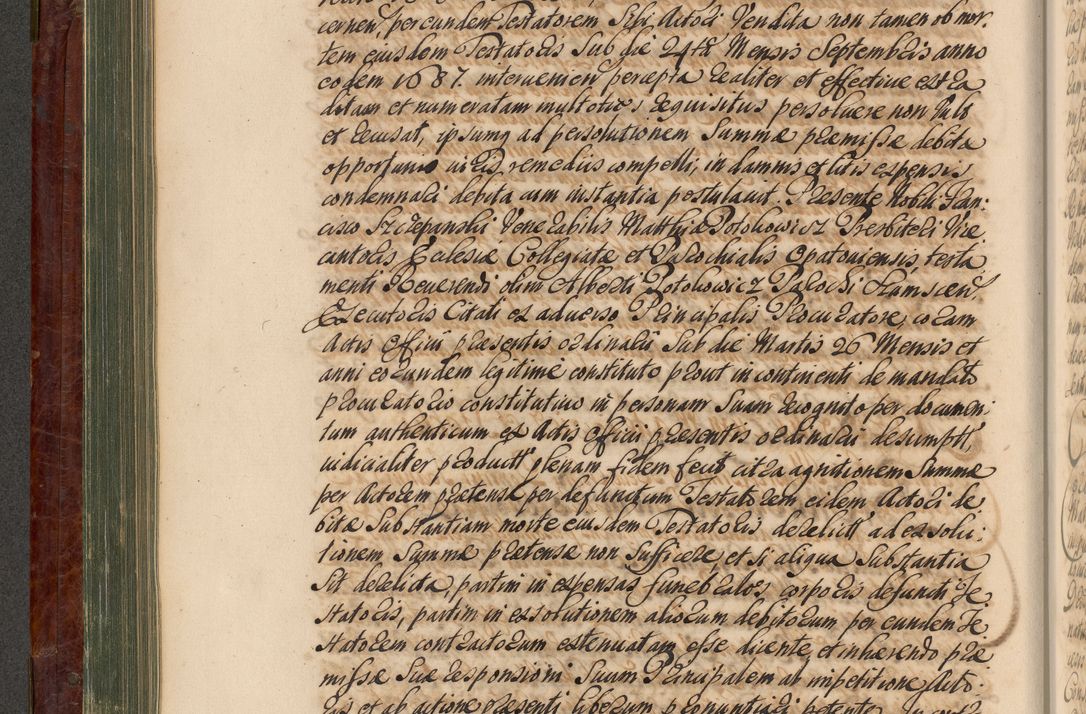 cernen, per eundem Testatorem Sibi Actori Vendita non tamen ob mor:
tem eiusdem Testatoris Sub die 24ta Mensis Septembris anno
eodem 1687. intervenien percepta realiter et effective extra
ditam et numeratam multoties requisitus persoluere non vult
et recusat, ipsumq ad persolutionem Summæ præmissæ debitæ
opportunis iuris remediis compelli, in damnis et litis expensis
condemnari debita cum instantia postulavit. Præsente Nobili Fran:
cisco Szczepanski Venerabilis Matthiæ Potokowicz Presbiteri Vice
cantoris Ecclesiæ Collegiatæ et Parochialis Opatoviensis, testa
menti Reverendi olim Alberti Potokowicz Parochi
Executoris Citati ex adverso Principalis Procuratore, coram
Actis Officii præsentis ordinarii Sub die Martis 26 Mensis et
anni eorundem legitime constituto prout in continenti de mandato
procuratorio constitutivo in personam Suam recognito per documen:
tum authenticum ex Actis Officii præsentis ordinarii desumptt
iudicialiter productt plenam fidem fecit citra agnitionem Summæ
per Actorem prætensæ per defunctum Testatorem eidem Actori de
bitæ Substantiam morte eiusdem Testatoris derelictt ad exsolu:
tionem Summæ prætensæ non Sufficere, et si aliqua Substantia
Sit derelicta, partim in expensas funebrales, corporis defuncti Te
statoris, partim in exsolutionem aliorum debitorum per eundem Te
statorem contractorum extenuatam esse dicente, et inhærendo præ
missæ Suæ responsioni Suum Principalem ab impetitione Acto:
ris et ab actione præsenti liberum pronuntiari petente